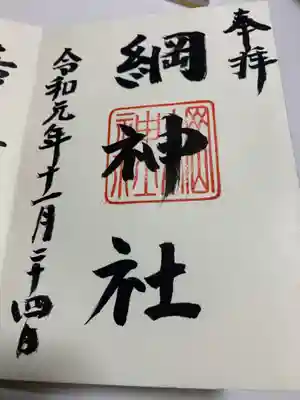 奉拝
綱神社
令和元年十一月二十四日